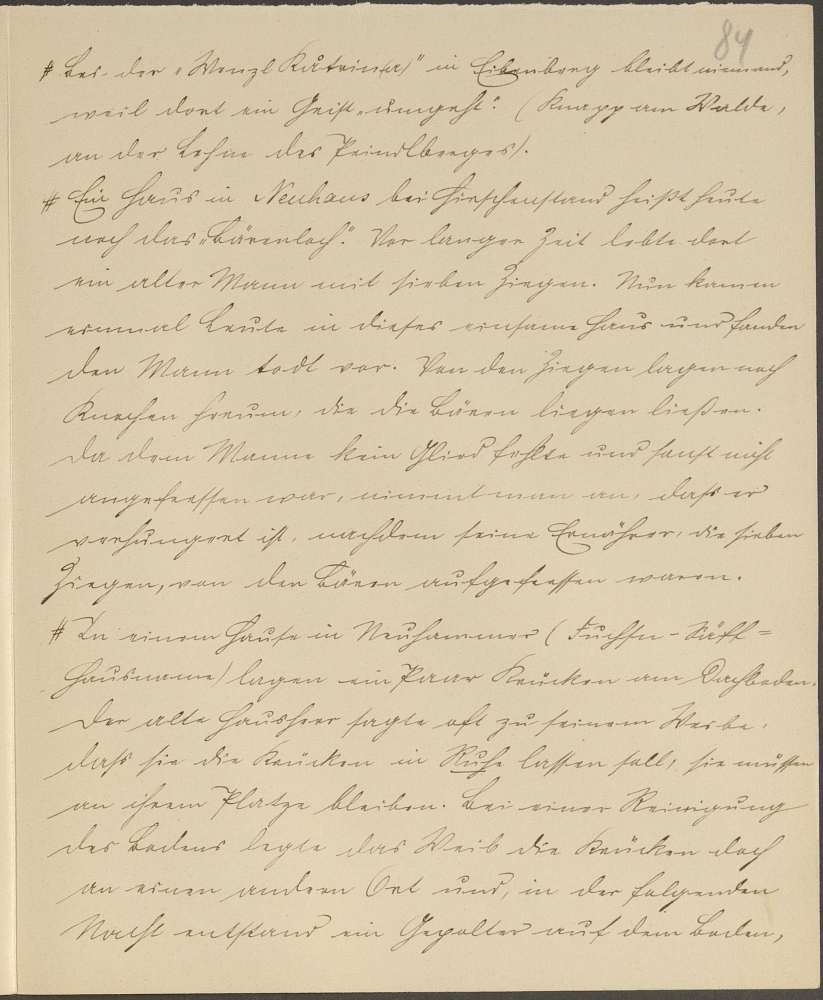 84
# Bei der „Wenzl Kåtrin(a)" in Eibenberg bleibt niemand,
weil dort ein Geist „umgeht". (Knapp am Walde,
an der Lehne des Peindlberges).
# Ein Haus in Neuhaus bei Hirschenstand heißt heute
noch das „Bärenloch". Vor langer Zeit lebte dort
ein alter Mann mit sieben Ziegen. Nun kamen
einmal Leute in dieses einsame Haus und fanden
den Mann todt vor. Von den Ziegen lagen noch
Knochen herum, die die Bären liegen ließen.
Da dem Manne kein Glied fehlte und sonst nicht
angefressen war, nimmt man an, daß er
verhungert ist, nachdem seine Ernährer, die sieben
Ziegen, von den Bären aufgefressen waren.
# In einem Hause in Neuhammer (Fuchsn-Säff=
Hausname) lagen ein Paar Krücken am Dachboden.
Der alte Hausherr sagte oft zu seinem Weibe,
daß sie die Krücken in Ruhe lassen soll, sie müssen
an ihrem Platze bleiben. Bei einer Reinigung
des Bodens legte das Weib die Krücken doch
an einen andern Ort und, in der folgenden
Nacht entstand ein Gepolter auf dem Boden,